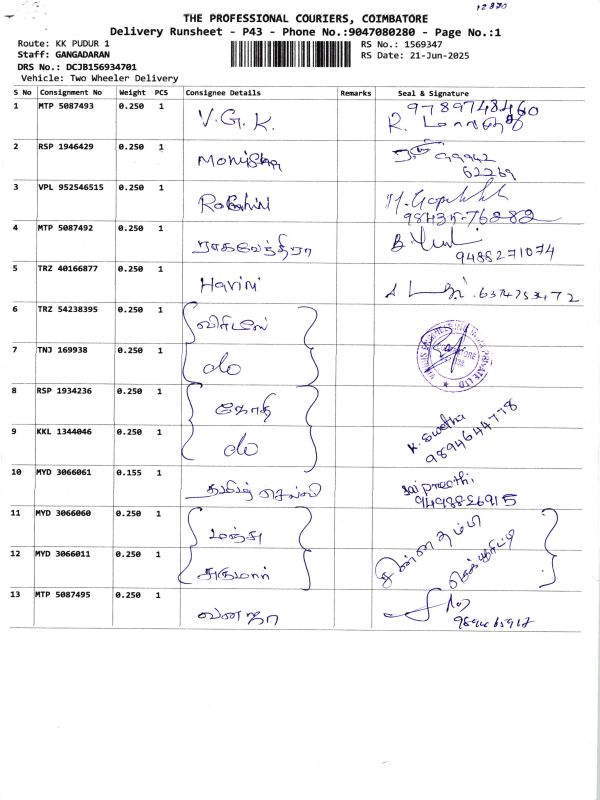 12870
THE PROFESSIONAL COURIERS, COIMBATORE
Delivery Runsheet - P43 - Phone No.:9047080280 - Page No.:1
Route: KK PUDUR 1
RS No.: 1569347
Staff: GANGADARAN
RS Date: 21-Jun-2025
DRS No.: DCJB156934701
Vehicle: Two Wheeler Delivery
S No Consignment No Weight PCS Consignee Details Remarks Seal & Signature
1 MTP 5087493 0.250 1 V.G.K. 9789748460
R.
2 RSP 1946429 0.250 1 Monisha 99942
62269
3 VPL 952546515 0.250 1 Roshini 98435-76282
4 MTP 5087492 0.250 1 ராகவேந்திரா 9488271074
5 TRZ 40166877 0.250 1 Harini 6374753472
6 TRZ 54238395 0.250 1
7 TNJ 169938 0.250 1 do
8 RSP 1934236 0.250 1 ஜோதி K. Swetha
9894644778
9 KKL 1344046 0.250 1 do
10 MYD 3066061 0.155 1 தமிழ் செல்வி Sai preethi
9498886915
11 MYD 3066060 0.250 1 மஞ்சு சின்னதம்பி
12 MYD 3066011 0.250 1 சுகுமார் செக்யூரிட்டி
13 MTP 5087495 0.250 1 வனஜா